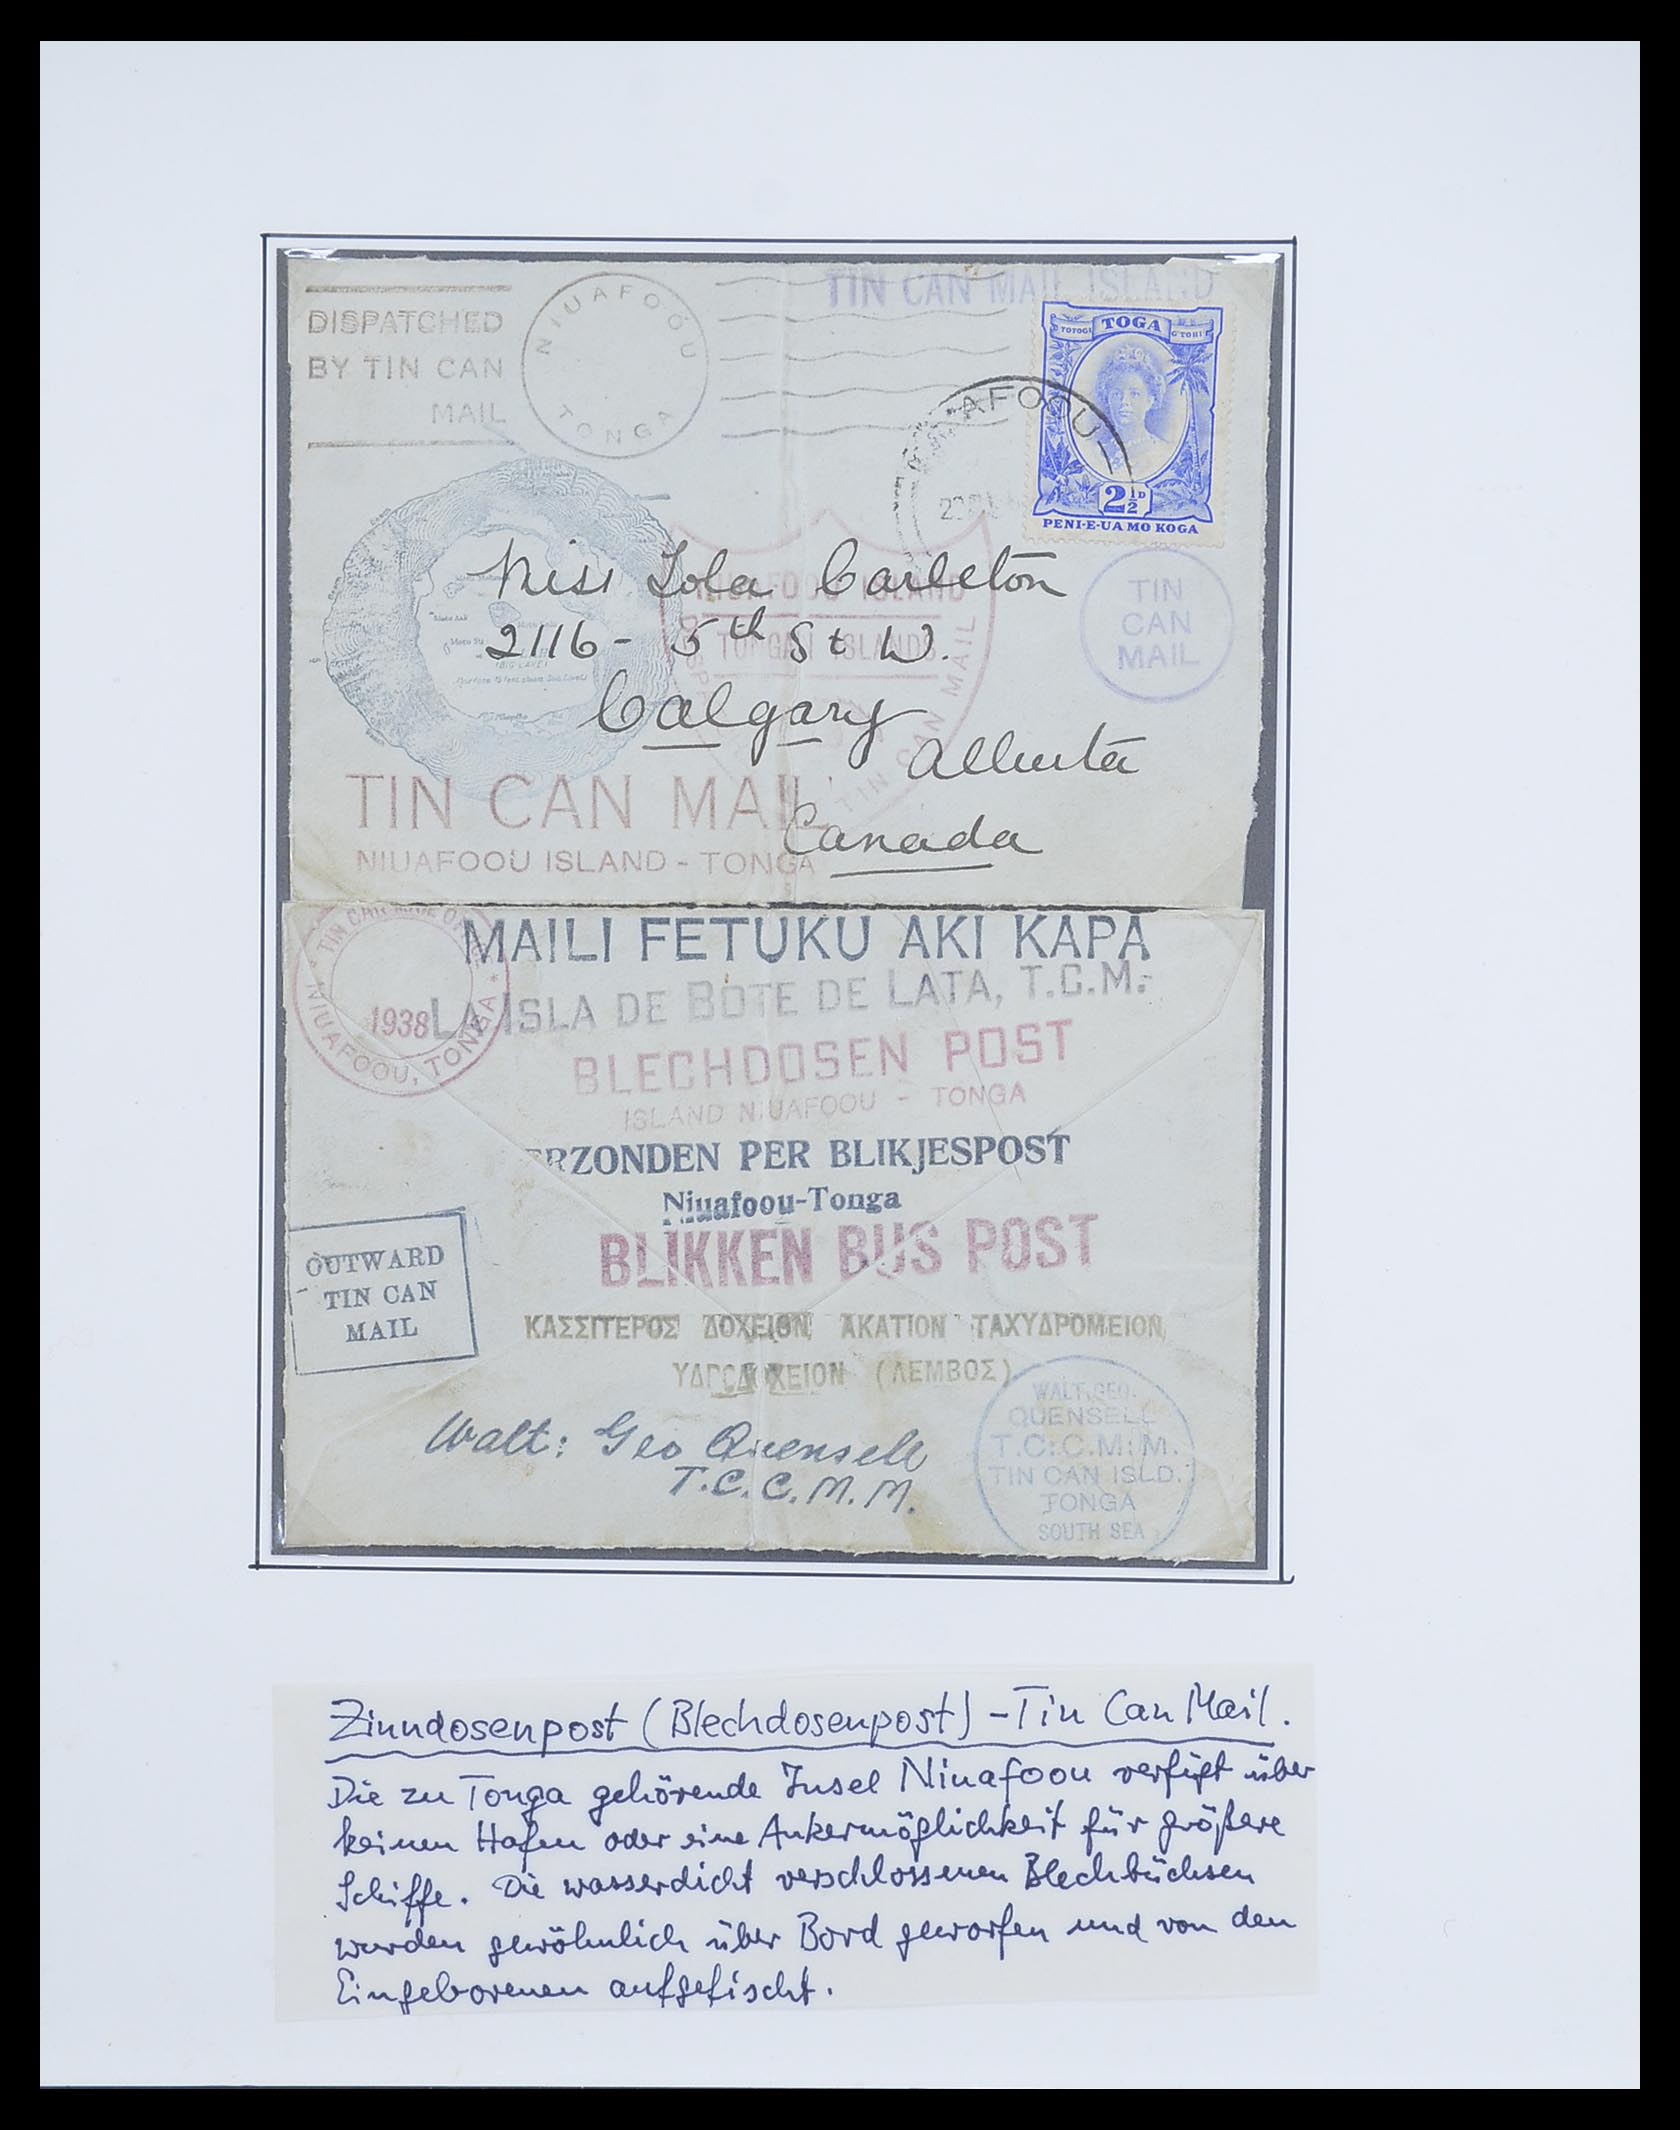 TIN CAN MAIL ISLAND
DISPATCHED
BY TIN CAN
MAIL
NIUAFOOU
TONGA
TOTOGI TOGA G TOHI
2½D
PENI-E-UA MO KOGA
NIUAFOOU
TIN
CAN
MAIL
NIUAFOOU ISLAND
TONGAN ISLANDS
TIN CAN MAIL
(BIG LAKE)
Miss Iola Carleton
2116 - 5th St W.
Calgary
Alberta
Canada
TIN CAN MAIL
NIUAFOOU ISLAND - TONGA
TIN CAN MAIL
NIUAFOOU, TONGA
1938
MAILI FETUKU AKI KAPA
LA ISLA DE BOTE DE LATA, T.C.M.
BLECHDOSEN POST
ISLAND NIUAFOOU - TONGA
ERZONDEN PER BLIKJESPOST
Niuafoou-Tonga
BLIKKEN BUS POST
OUTWARD
TIN CAN
MAIL
ΚΑΣΣΙΤΕΡΟΣ ΔΟΧΕΙΟΝ ΑΚΑΤΙΟΝ ΤΑΧΥΔΡΟΜΕΙΟΝ,
ΥΔΡΟΔΟΧΕΙΟΝ (ΛΕΜΒΟΣ)
Walt: Geo Quensell
T.C.C.M.M.
WALT. GEO.
QUENSELL
T.C.C.M.M.
TIN CAN ISLD.
TONGA
SOUTH SEA
Zinndosenpost (Blechdosenpost) - Tin Can Mail.
Die zu Tonga gehörende Insel Niuafoou verfügt über
keinen Hafen oder eine Ankermöglichkeit für größere
Schiffe. Die wasserdicht verschlossenen Blechbüchsen
wurden gewöhnlich über Bord geworfen und von den
Eingeborenen aufgefischt.